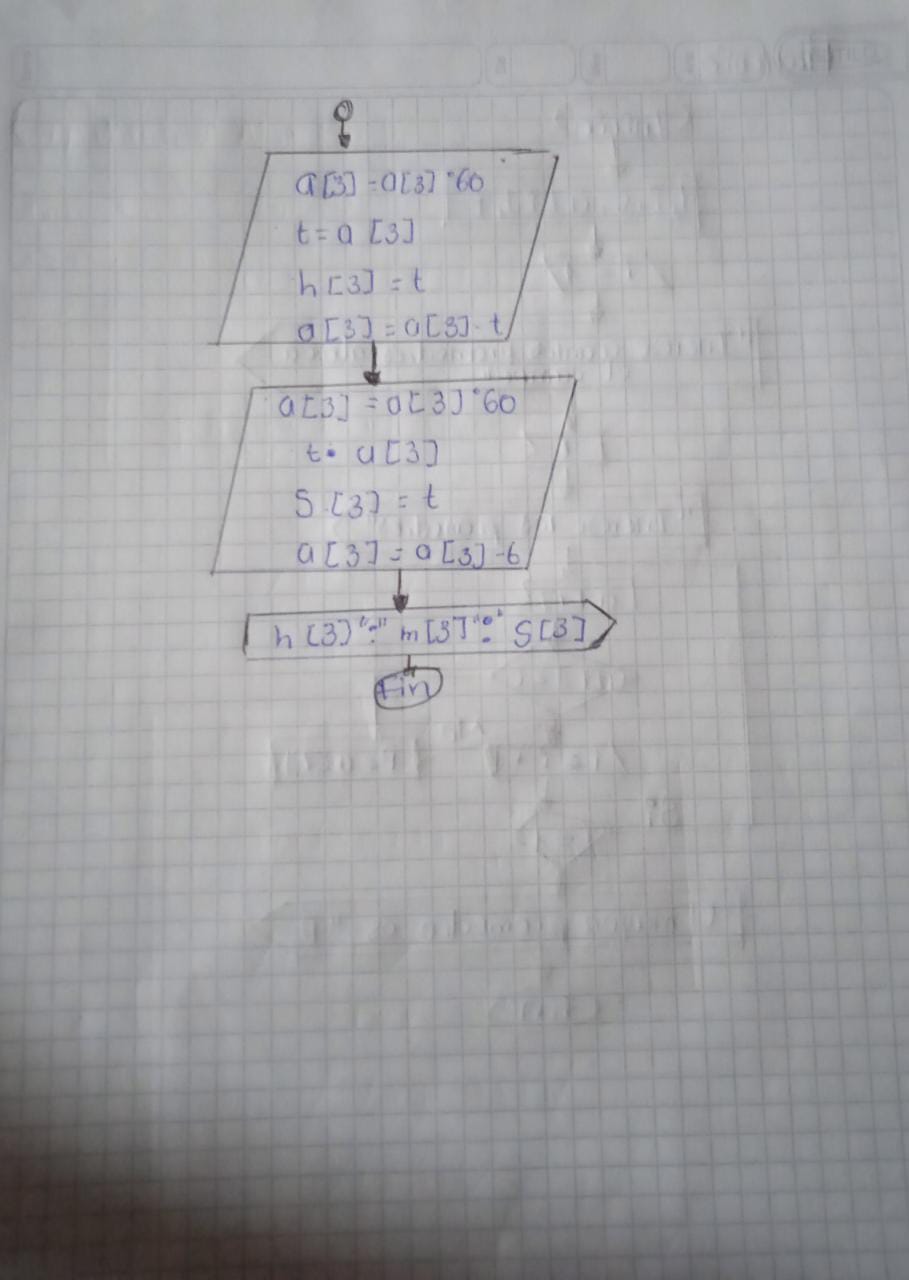 a[3] = a[3] *60
t = a [3]
h [3] = t
a[3] = a[3] - t
a[3] = a[3] *60
t = a[3]
S [3] = t
a[3] = a[3] -6
h [3] ":" m[3] ":" S[3]
Fin